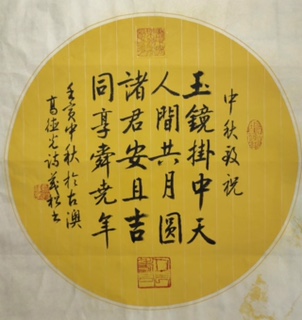 中秋敬祝
玉鏡掛中天
人間共月圓
諸君安且吉
同享舜尭年
壬寅中秋於古澳
高徳光詩並書